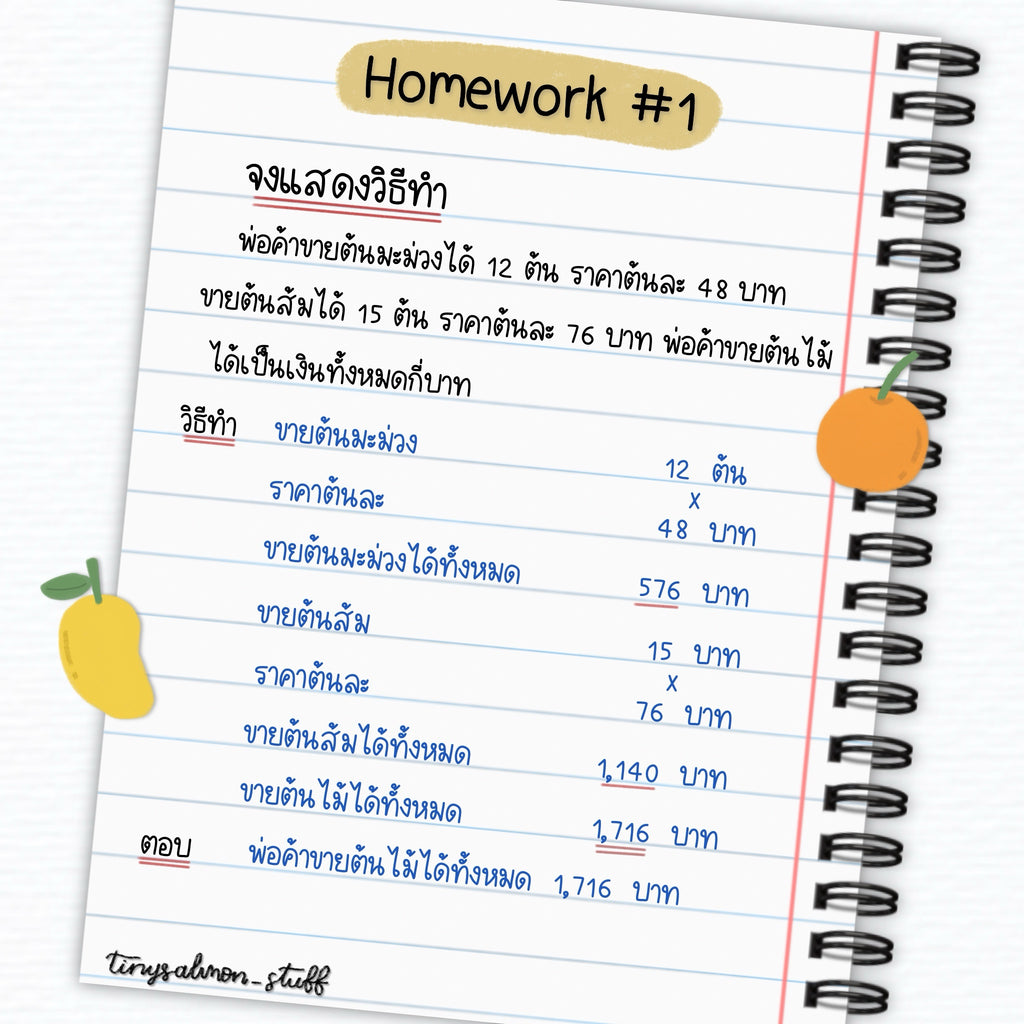 Homework #1
จงแสดงวิธีทำ
พ่อค้าขายต้นมะม่วงได้ 12 ต้น ราคาต้นละ 48 บาท
ขายต้นส้มได้ 15 ต้น ราคาต้นละ 76 บาท พ่อค้าขายต้นไม้
ได้เป็นเงินทั้งหมดกี่บาท
วิธีทำ ขายต้นมะม่วง 12 ต้น
x
ราคาต้นละ 48 บาท
ขายต้นมะม่วงได้ทั้งหมด 576 บาท
ขายต้นส้ม 15 บาท
x
ราคาต้นละ 76 บาท
ขายต้นส้มได้ทั้งหมด 1,140 บาท
ขายต้นไม้ได้ทั้งหมด 1,716 บาท
ตอบ พ่อค้าขายต้นไม้ได้ทั้งหมด 1,716 บาท
tinysalmon_stuff